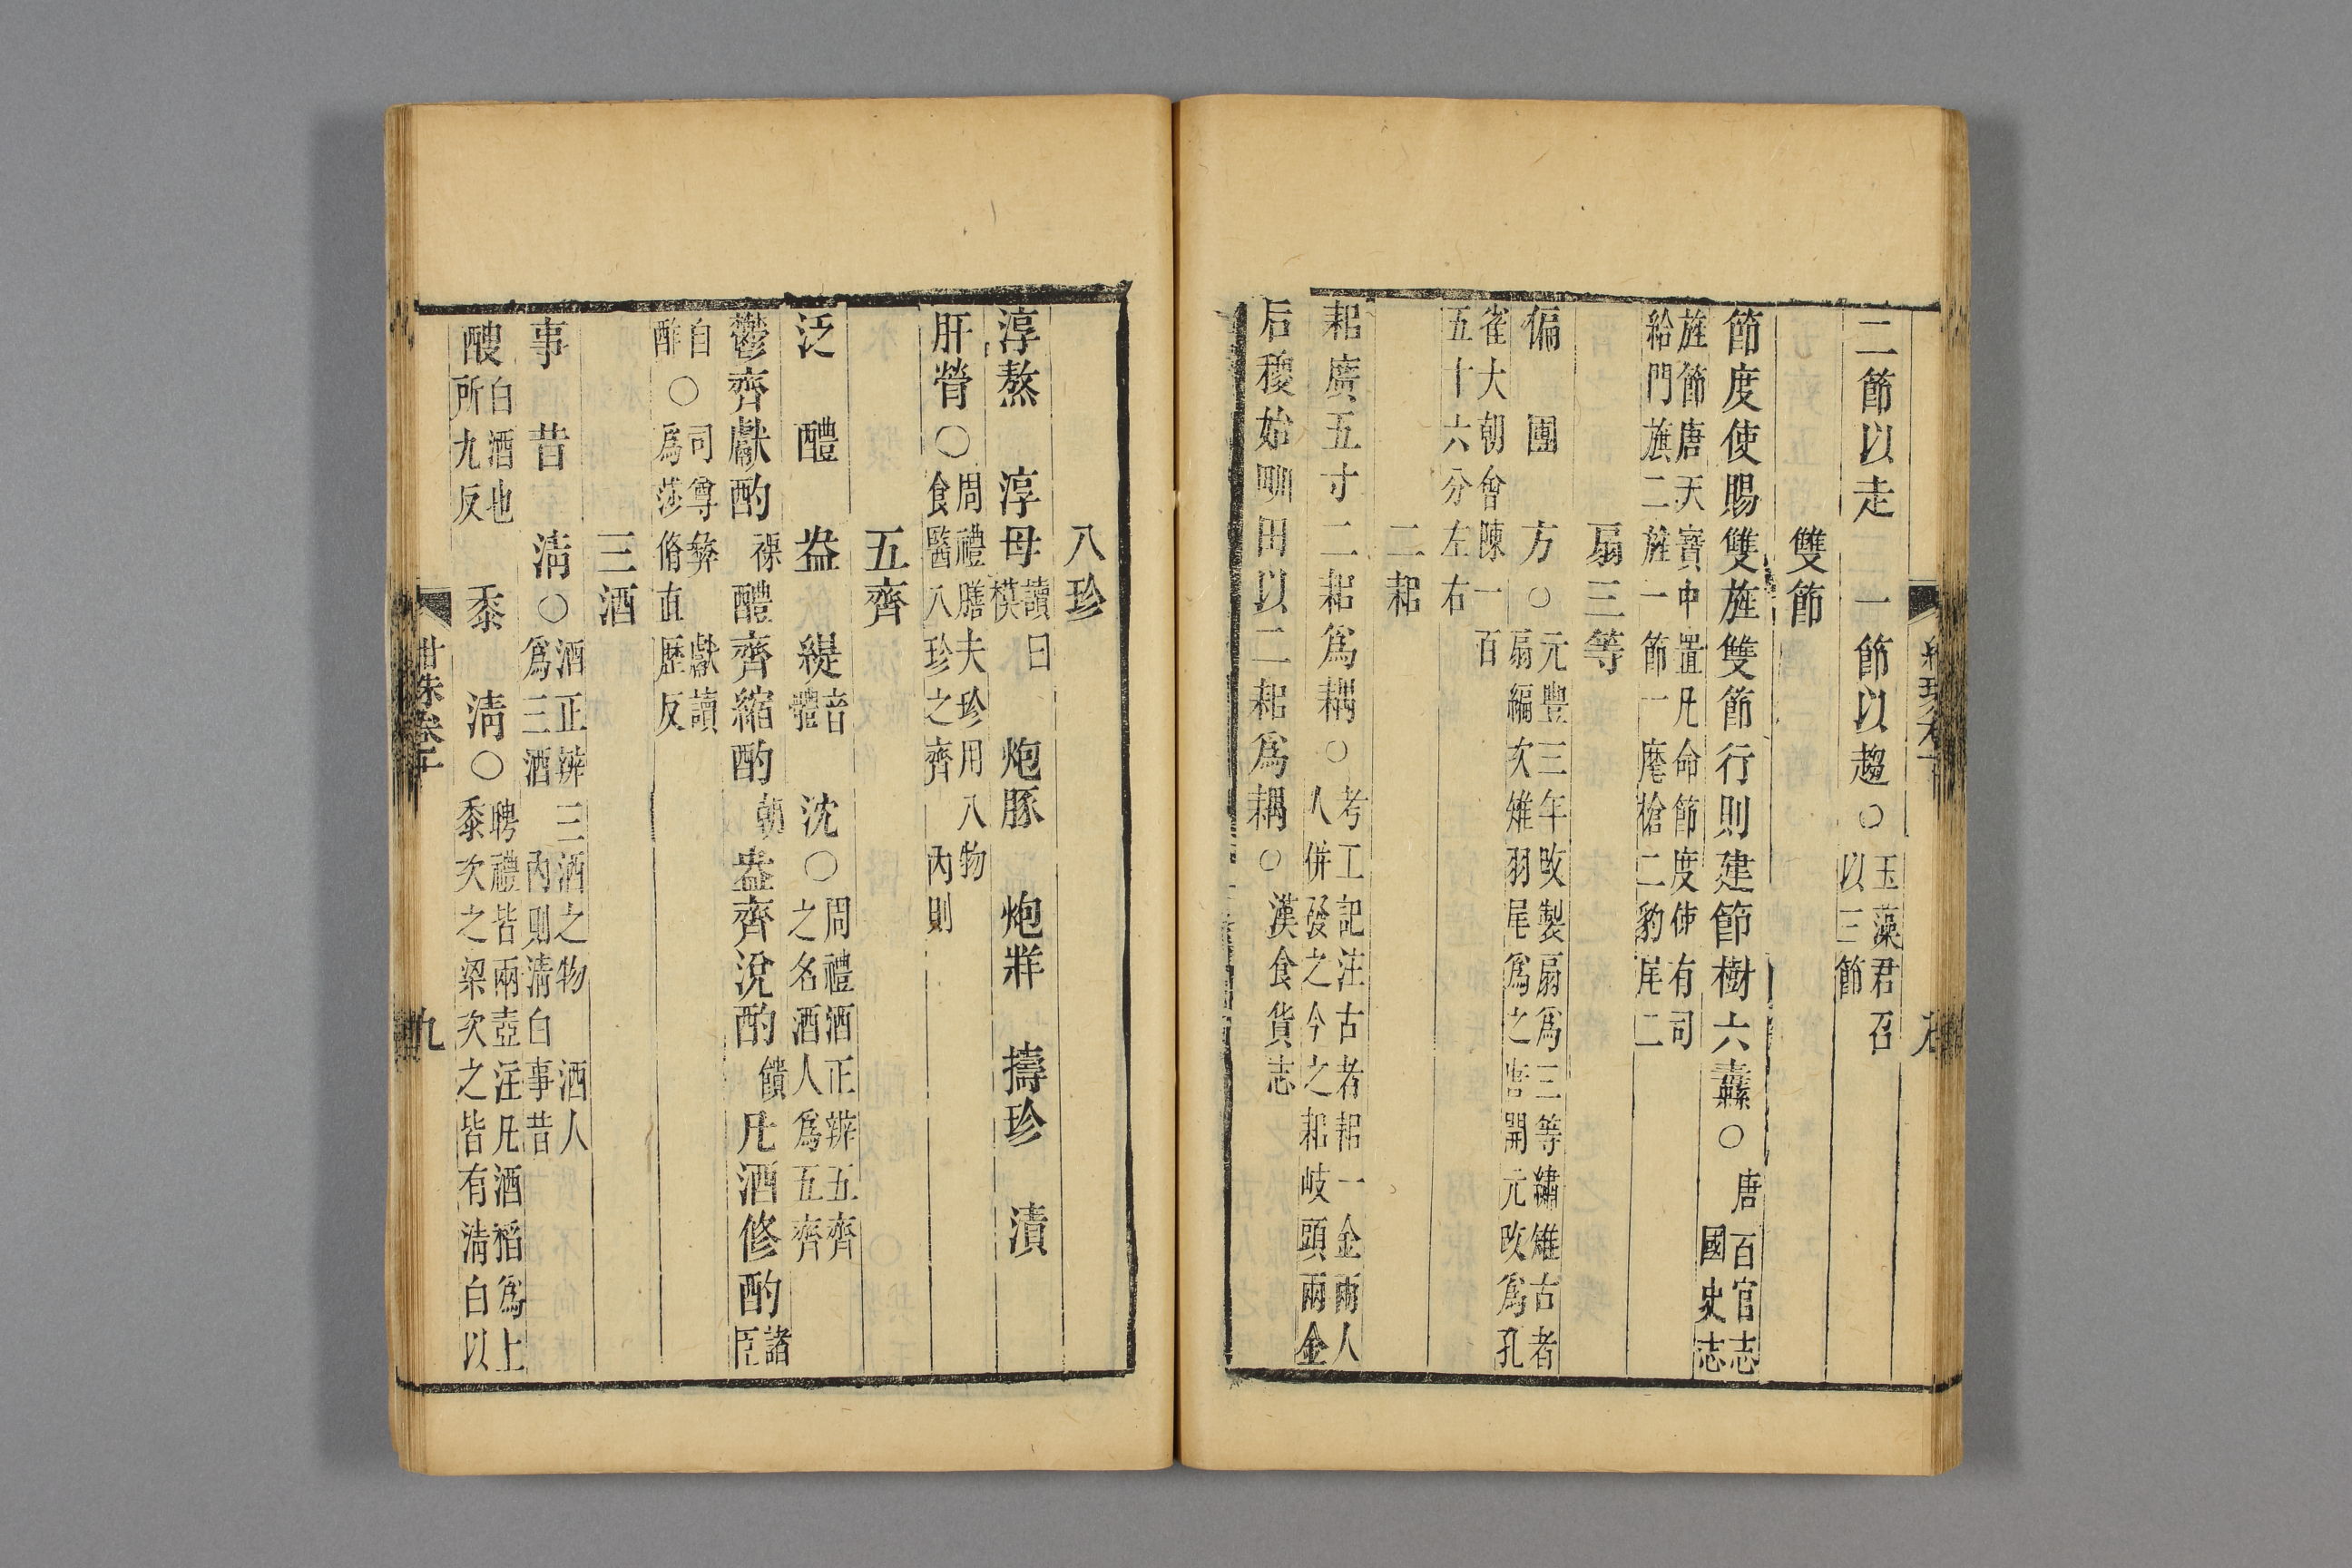 二節以走 一節以趨○玉藻君召以三節
雙節
節度使賜雙旌雙節行則建節樹六纛○唐百官志國史志
旌節唐天寶中置凡命節度使有司給門旗二旌一節一麾槍二豹尾二
扇三等
偏 團 方○元豐三年改製扇爲三等繡雉古者扇編次雉羽尾爲之唐開元改爲孔
雀大朝會陳一百五十六分左右
二耜
耜廣五寸二耜爲耦○考工記注古者耜一金兩人人併發之今之耜岐頭兩金
后稷始甽田以二耜爲耦○漢食貨志
八珍
淳熬 淳母讀曰模 炮豚 炮牂 擣珍 漬
肝膋○周禮膳夫珍用八物食醫八珍之齊 內則
五齊
泛 醴 盎 緹音體 沈○周禮酒正辨五齊之名酒人爲五齊
鬱齊獻酌祼醴齊縮酌朝盎齊涗酌饋凡酒修酌諸臣
自酢○司尊彝 獻讀爲莎脩直歷反
三酒
事 昔 清○酒正辨三酒之物 酒人爲三酒 內則清白事昔
醙白酒也所九反 黍 清○聘禮皆兩壺注凡酒稻爲上黍次之粱次之皆有清白以
九